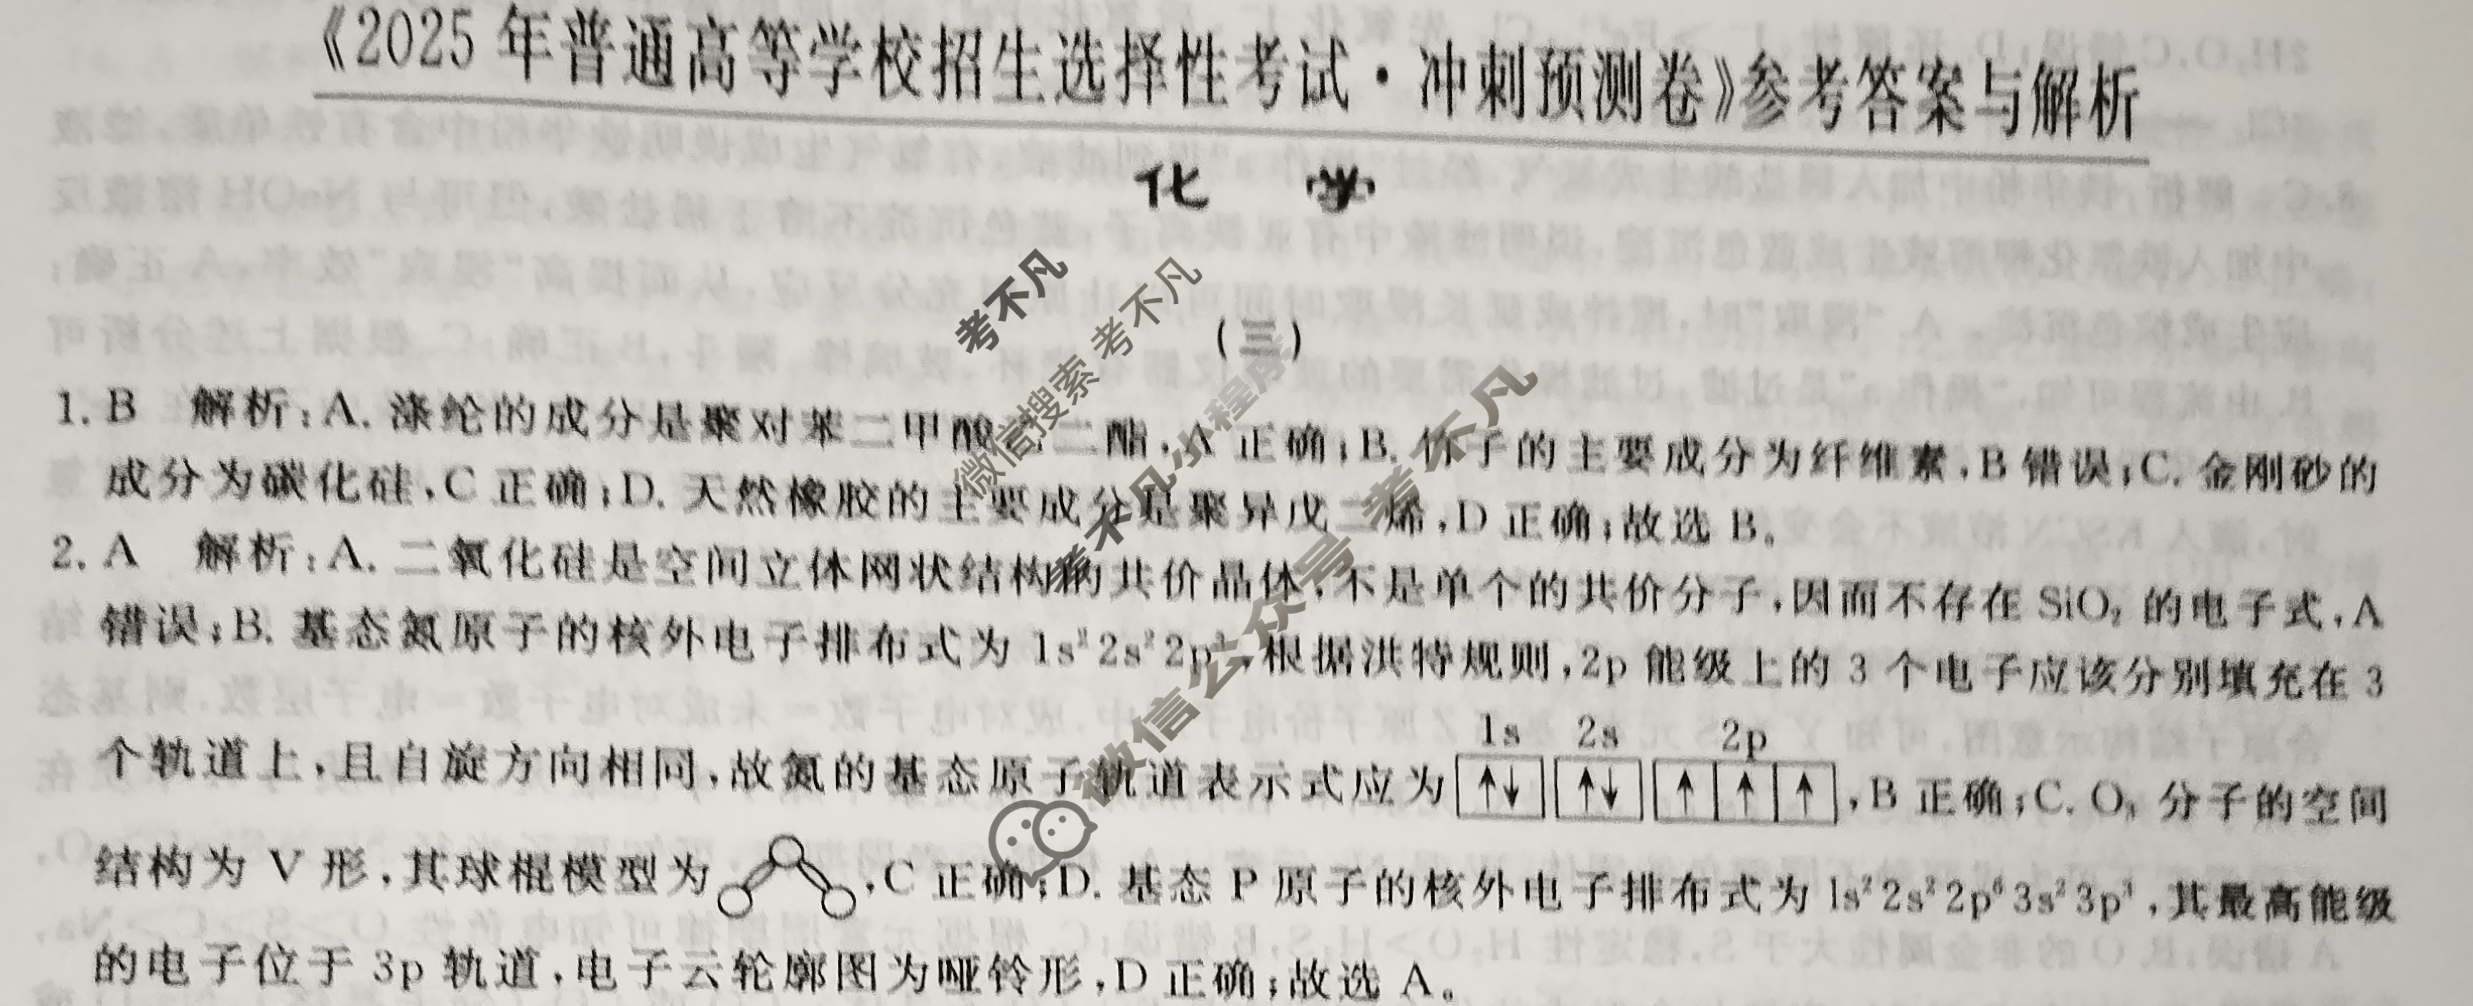 《2025年普通高等学校招生选择性考试·冲刺预测卷》参考答案与解析
化 学
(三)
1. B 解析:A. 涤纶的成分是聚对苯二甲酸乙二酯,A 正确;B. 竹子的主要成分为纤维素,B 错误;C. 金刚砂的
成分为碳化硅,C 正确;D. 天然橡胶的主要成分是聚异戊二烯,D 正确;故选 B。
2. A 解析:A. 二氧化硅是空间立体网状结构的共价晶体,不是单个的共价分子,因而不存在 SiO₂ 的电子式,A
错误;B. 基态氮原子的核外电子排布式为 1s²2s²2p³,根据洪特规则,2p 能级上的 3 个电子应该分别填充在 3
1s 2s 2p
个轨道上,且自旋方向相同,故氮的基态原子轨道表示式应为 ↑↓ ↑↓ ↑ ↑ ↑ ,B 正确;C. O₃ 分子的空间
结构为 V 形,其球棍模型为 ,C 正确;D. 基态 P 原子的核外电子排布式为 1s²2s²2p⁶3s²3p³,其最高能级
的电子位于 3p 轨道,电子云轮廓图为哑铃形,D 正确;故选 A。
考不凡
微信搜索 考不凡
考不凡小程序
微信公众号 考不凡